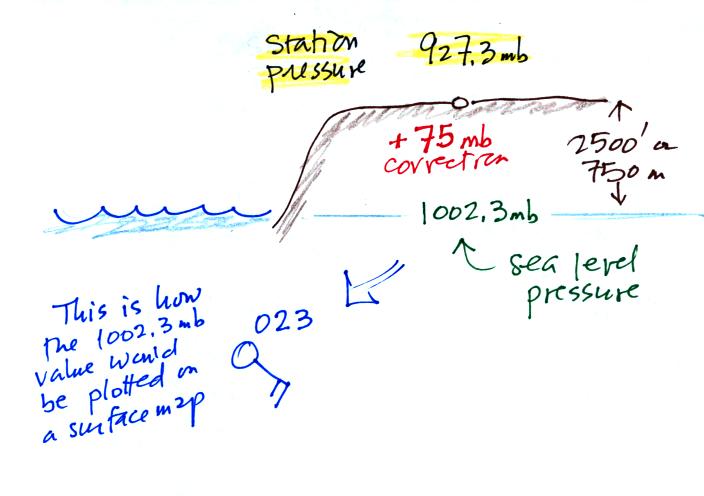 Station pressure 927.3 mb
+75 mb
correction
2500' or
750 m
1002.3 mb
sea level
pressure
This is how
the 1002.3 mb
value would
be plotted on
a surface map
023